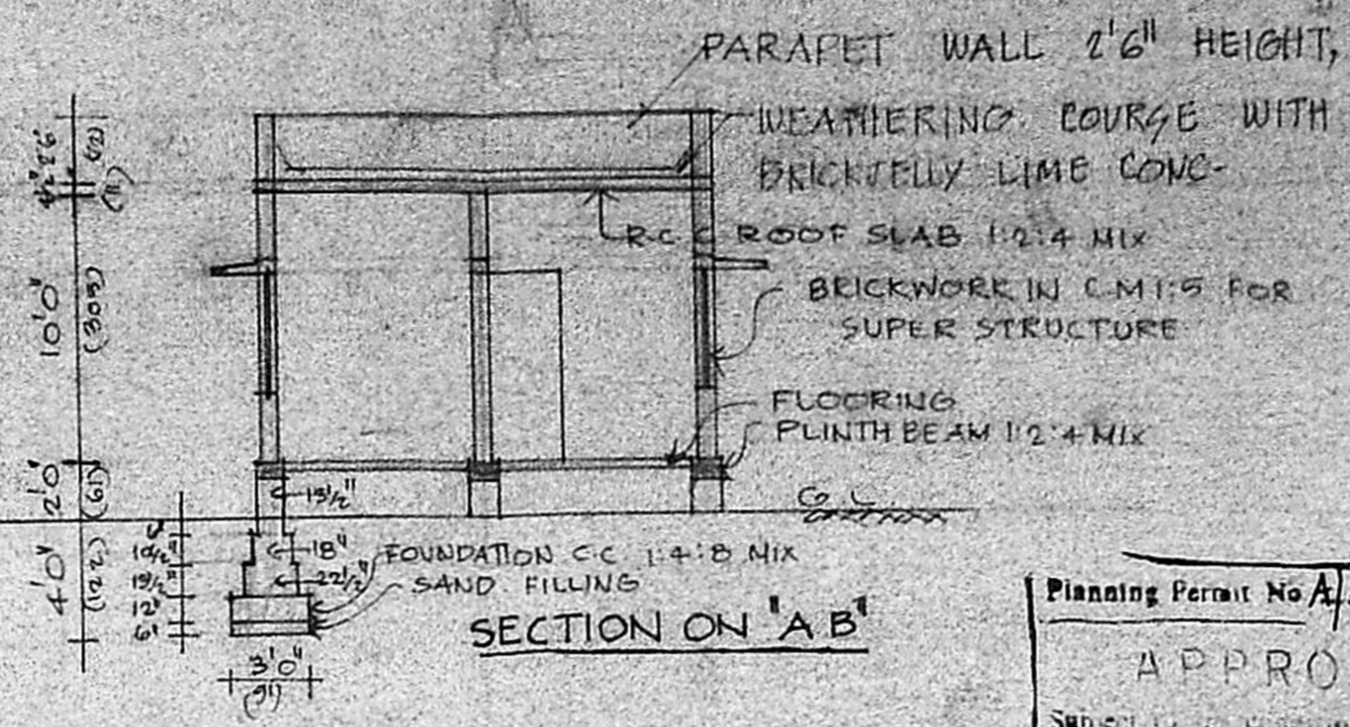 PARAPET WALL 2'6" HEIGHT,
WEATHERING COURSE WITH
BRICKJELLY LIME CONC-
R.C.C ROOF SLAB 1:2:4 MIX
BRICKWORK IN C.M 1:5 FOR
SUPER STRUCTURE
FLOORING
PLINTH BEAM 1:2:4 MIX
G L
2'6"
(11)
10'0"
(305)
2'0"
(61)
4'0"
(122)
13½"
18"
22½"
13½"
12"
6"
FOUNDATION C.C 1:4:8 MIX
SAND FILLING
3'0"
(91)
SECTION ON "A B"
Planning Permit No A/
APPRO